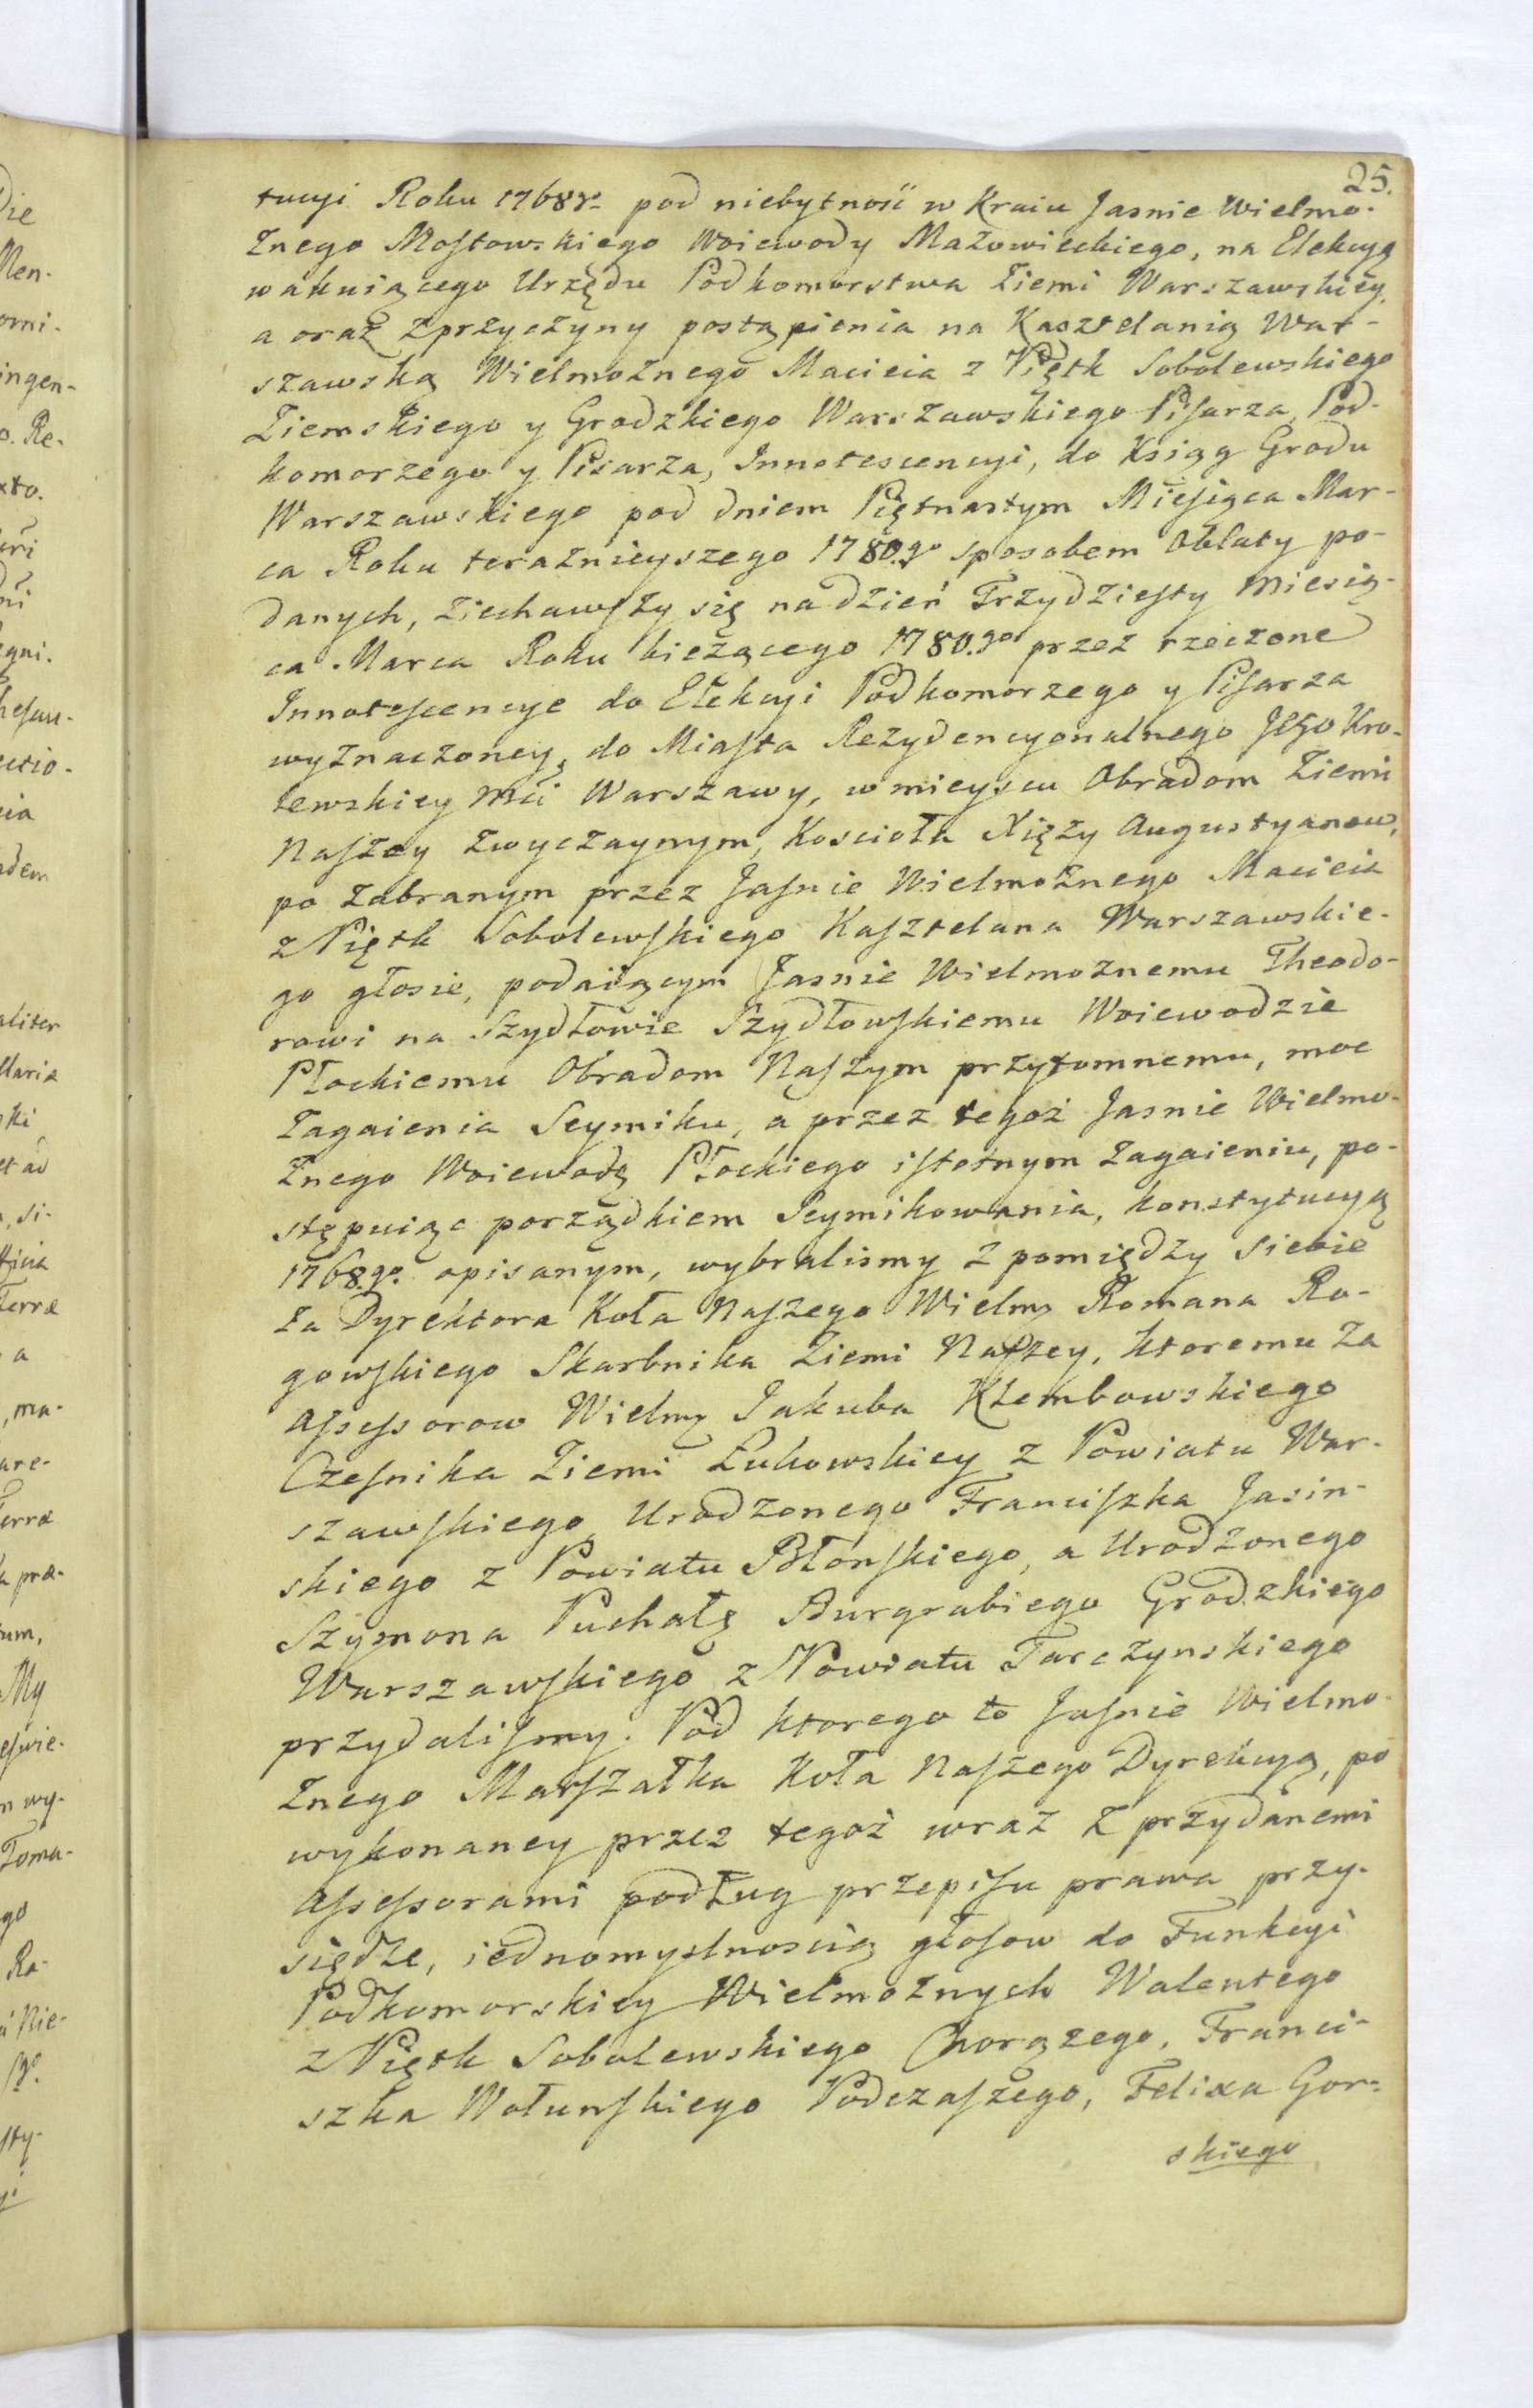 25.
tucyi Roku 1768r. pod niebytność w Kraiu Jasnie Wielmo-
żnego Mostowskiego Woiewody Mazowieckiego, na Elekcyą
wakuiącego Urzędu Podkomorstwa Ziemi Warszawskiey,
a oraz z przyczyny postąpienia na Kasztelanią War-
szawską Wielmożnego Macieia z Piętk Sobolewskiego
Ziemskiego y Grodzkiego Warszawskiego Pisarza, Pod-
komorzego y Pisarza, Innotescencyi, do Ksiąg Grodu
Warszawskiego pod dniem Piętnastym Miesiąca Mar-
ca Roku teraznieyszego 1780.go sposobem Oblaty po-
danych, ziechawszy się na dzień Trzydziesty Miesią-
ca Marca Roku bieżącego 1780.go przez rzeczone
Innotescencye do Elekcyi Podkomorzego y Pisarza
wyznaczoney, do Miasta Rezydencyonalnego Jego Kro-
lewskiey Mci Warszawy, w mieyscu Obradom Ziemi
Naszey zwyczaynym, Koscioła Xięży Augustyanow,
po zabranym przez Jasnie Wielmożnego Macieia
z Piętk Sobolewskiego Kasztelana Warszawskie-
go głosie, podaiącym Jasnie Wielmożnemu Theodo-
rowi na Szydłowie Szydłowskiemu Woiewodzie
Płockiemu Obradom Naszym przytomnemu, moc
Zagaienia Seymiku, a przez tegoż Jasnie Wielmo-
żnego Woiewodę Płockiego istotnym Zagaieniu, po-
stępuiąc porządkiem Seymikowania, Konstytucyą
1768.go opisanym, wybralismy z pomiędzy siebie
za Dyrektora Koła Naszego Wielmo Romana Ro-
gowskiego Skarbnika Ziemi Naszey, ktoremu za
Assessorow Wielmo Jakuba Klembowskiego
Czesnika Ziemi Łukowskiey z Powiatu War-
szawskiego, Urodzonego Franciszka Jasin-
skiego z Powiatu Błonskiego, a Urodzonego
Szymona Puchałę Burgrabiego Grodzkiego
Warszawskiego z Powiatu Tarczynskiego
przydalismy. Pod ktorego to Jasnie Wielmo-
żnego Marszałka Koła Naszego Dyrekcyą, po
wykonaney przez tegoż wraz z przydanemi
Assessorami podług przepisu prawa przy-
siędze, iednomyslnoscią głosow do Funkcyi
Podkomorskiey Wielmożnych Walentego
z Piętk Sobolewskiego Chorązego, Franci-
szka Wołunskiego Podczaszego, Felixa Gor-
skiego